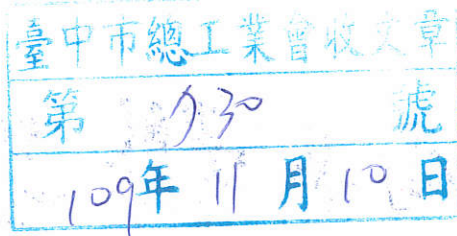 臺中市總工業會收文章
第 930 號
109年 11 月 10 日